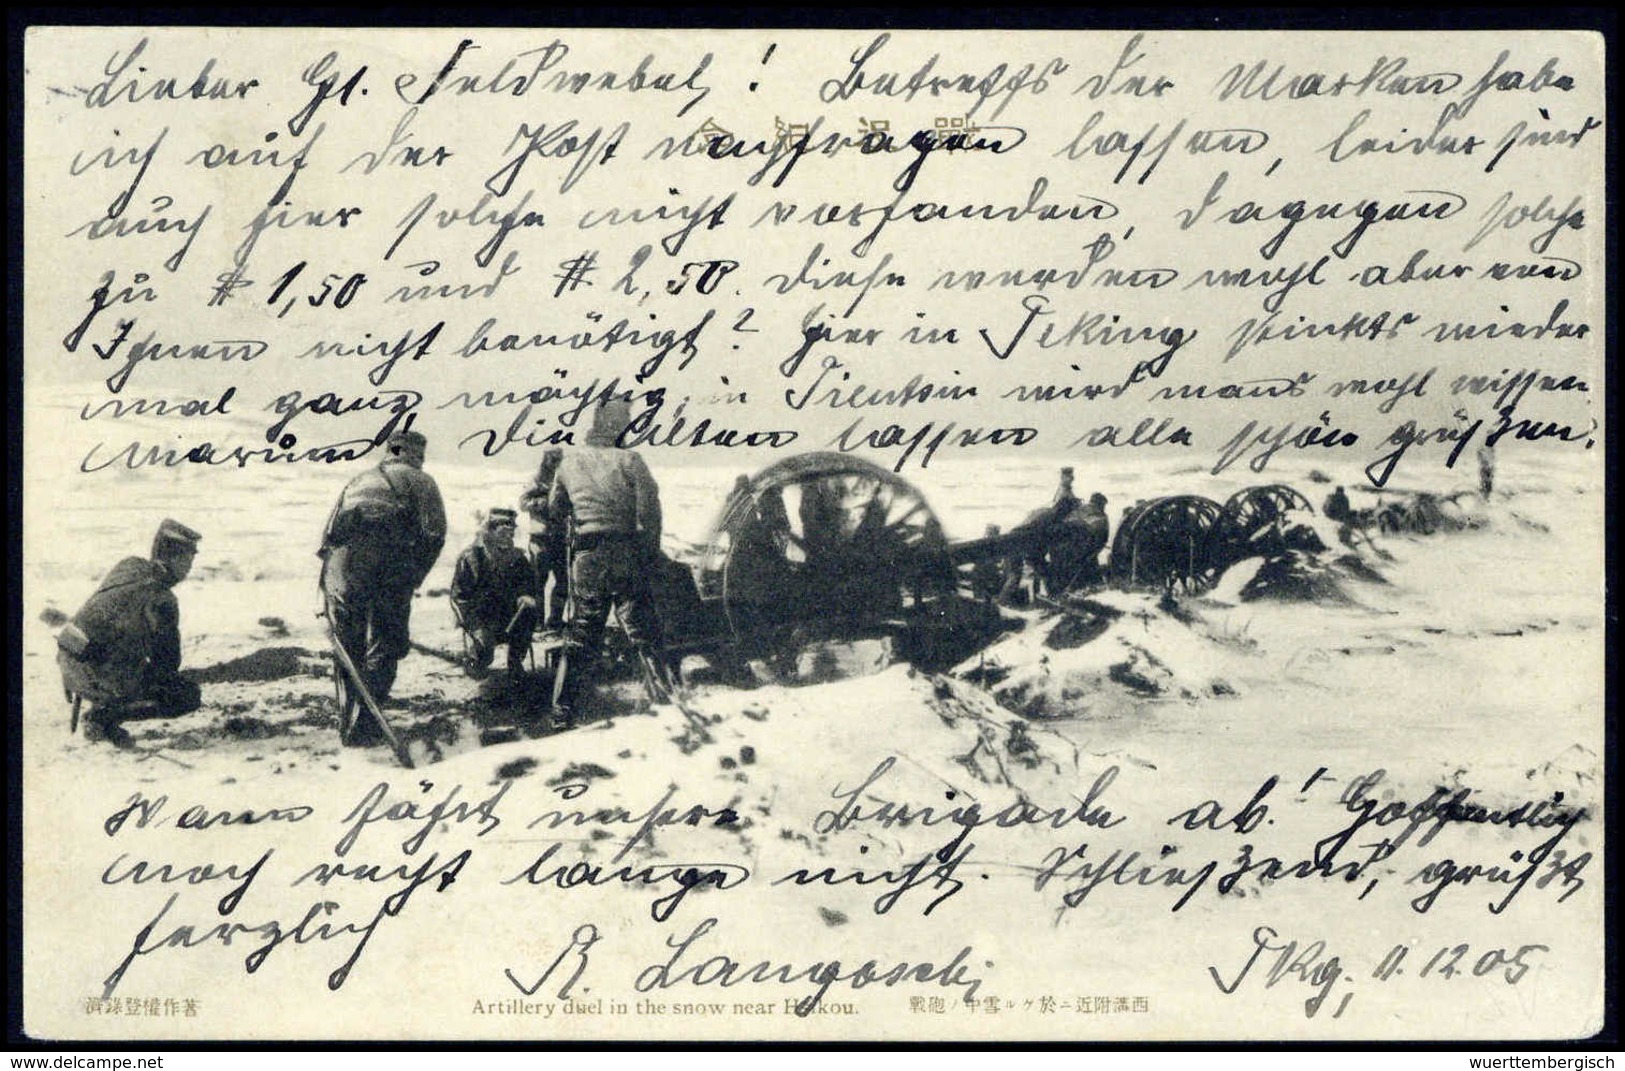 Lieber Gl. Feldwebel! Betreffs der Marken habe
ich auf der Post nachfragen lassen, leider sind
auch hier solche nicht vorhanden, dagegen solche
zu # 1,50 und # 2,50. Diese werden wohl aber von
Ihnen nicht benötigt? Hier in Peking stinkts wieder
mal ganz mächtig, in Tientsin wird mans wohl wissen
warum! Die Alten lassen alle schön grüßen.
Wann fährt unsere Brigade ab! Hoffentlich
noch recht lange nicht. Schließend, grüßt
herzlich
R.
Pkg, 11.12.05
著作權登錄濟
Artillery duel in the snow near Heikou.
西溝附近ニ於ケル雪中ノ砲戰
delcampe.net
wuerttembergisch